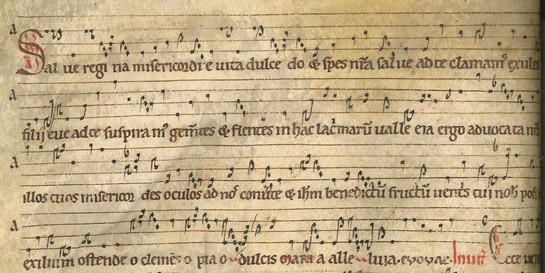 Sal ue regi na misericordi e uita dulce do & spes nr̃a sal ue ad te clamam᷒ exules
filij eue ad te suspira m᷒ gem̃tes & flentes in hac lac̃marũ ualle eia ergo aduocata nr̃a
illos tuos misericor des oculos ad nos̃ conũte & ihm̃ benedictũ fructũ uent̃s tui nob̃ post
exilium ostende o clemẽs o pia o dulcis maria alle luia. euouae. Inuit̃ Ecce uen